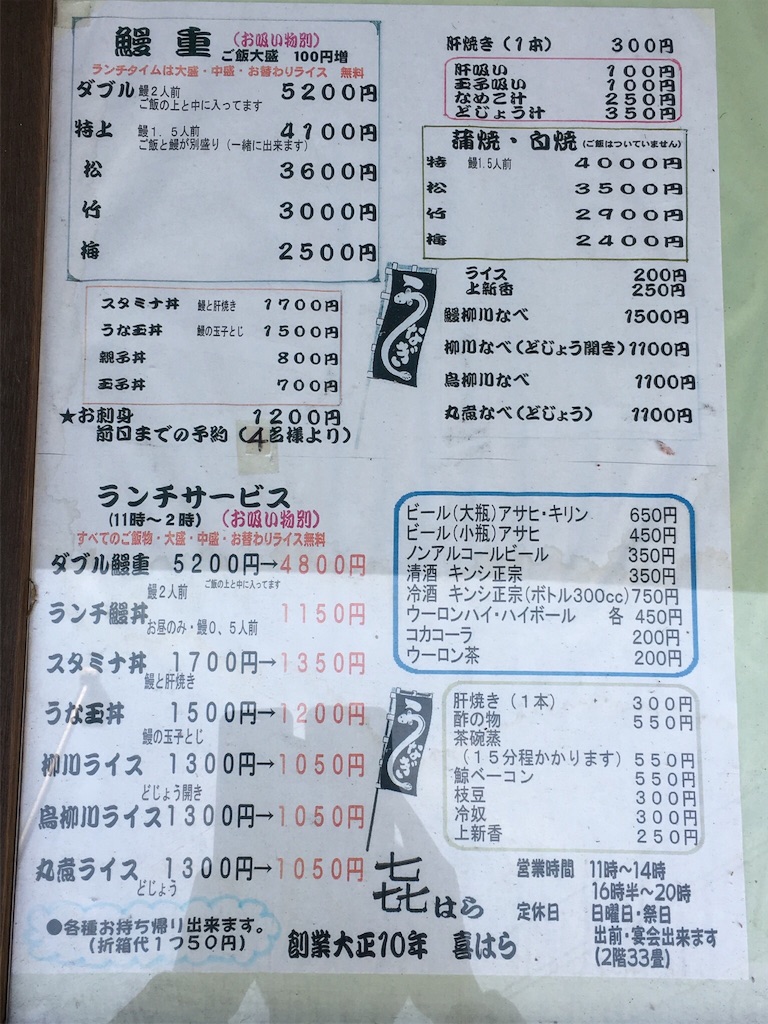 鰻重 (お吸い物別)
ご飯大盛 100円増
ランチタイムは大盛・中盛・お替わりライス 無料
ダブル 鰻2人前 5200円
ご飯の上と中に入ってます
特上 鰻1.5人前 4100円
ご飯と鰻が別盛り(一緒に出来ます)
松 3600円
竹 3000円
梅 2500円
スタミナ丼 鰻と肝焼き 1700円
うな玉丼 鰻の玉子とじ 1500円
親子丼 800円
玉子丼 700円
★お刺身 1200円
前日までの予約(4名様より)
肝焼き(1本) 300円
肝吸い 100円
玉子吸い 100円
なめこ汁 250円
どじょう汁 350円
蒲焼・白焼 (ご飯はついていません)
特 鰻1.5人前 4000円
松 3500円
竹 2900円
梅 2400円
ライス 200円
上新香 250円
鰻柳川なべ 1500円
柳川なべ(どじょう開き) 1100円
鳥柳川なべ 1100円
丸煮なべ(どじょう) 1100円
うなぎ
ランチサービス
(11時〜2時) (お吸い物別)
すべてのご飯物・大盛・中盛・お替わりライス無料
ダブル鰻重 5200円→4800円
鰻2人前 ご飯の上と中に入ってます
ランチ鰻丼 1150円
お昼のみ・鰻0、5人前
スタミナ丼 1700円→1350円
鰻と肝焼き
うな玉丼 1500円→1200円
鰻の玉子とじ
柳川ライス 1300円→1050円
どじょう開き
鳥柳川ライス 1300円→1050円
丸煮ライス 1300円→1050円
どじょう
●各種お持ち帰り出来ます。
(折箱代1つ50円)
ビール(大瓶)アサヒ・キリン 650円
ビール(小瓶)アサヒ 450円
ノンアルコールビール 350円
清酒 キンシ正宗 350円
冷酒 キンシ正宗(ボトル300cc) 750円
ウーロンハイ・ハイボール 各 450円
コカコーラ 200円
ウーロン茶 200円
うなぎ
肝焼き(1本) 300円
酢の物 550円
茶碗蒸
(15分程かかります) 550円
鯨ベーコン 550円
枝豆 300円
冷奴 300円
上新香 250円
㐂はら
創業大正10年 喜はら
営業時間 11時〜14時
16時半〜20時
定休日 日曜日・祭日
出前・宴会出来ます
(2階33畳)